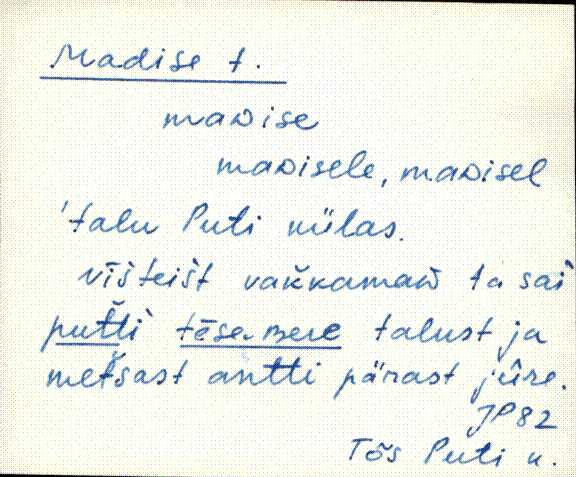 Madise t.
maᴅise
maᴅisele, maᴅisel
'talu Puti külas.
vīšteišt vakkamaaᴅ ta sai
putti tēse mere talust ja
metsast antti pärast jûre.
JP82
Tõs Puti k.